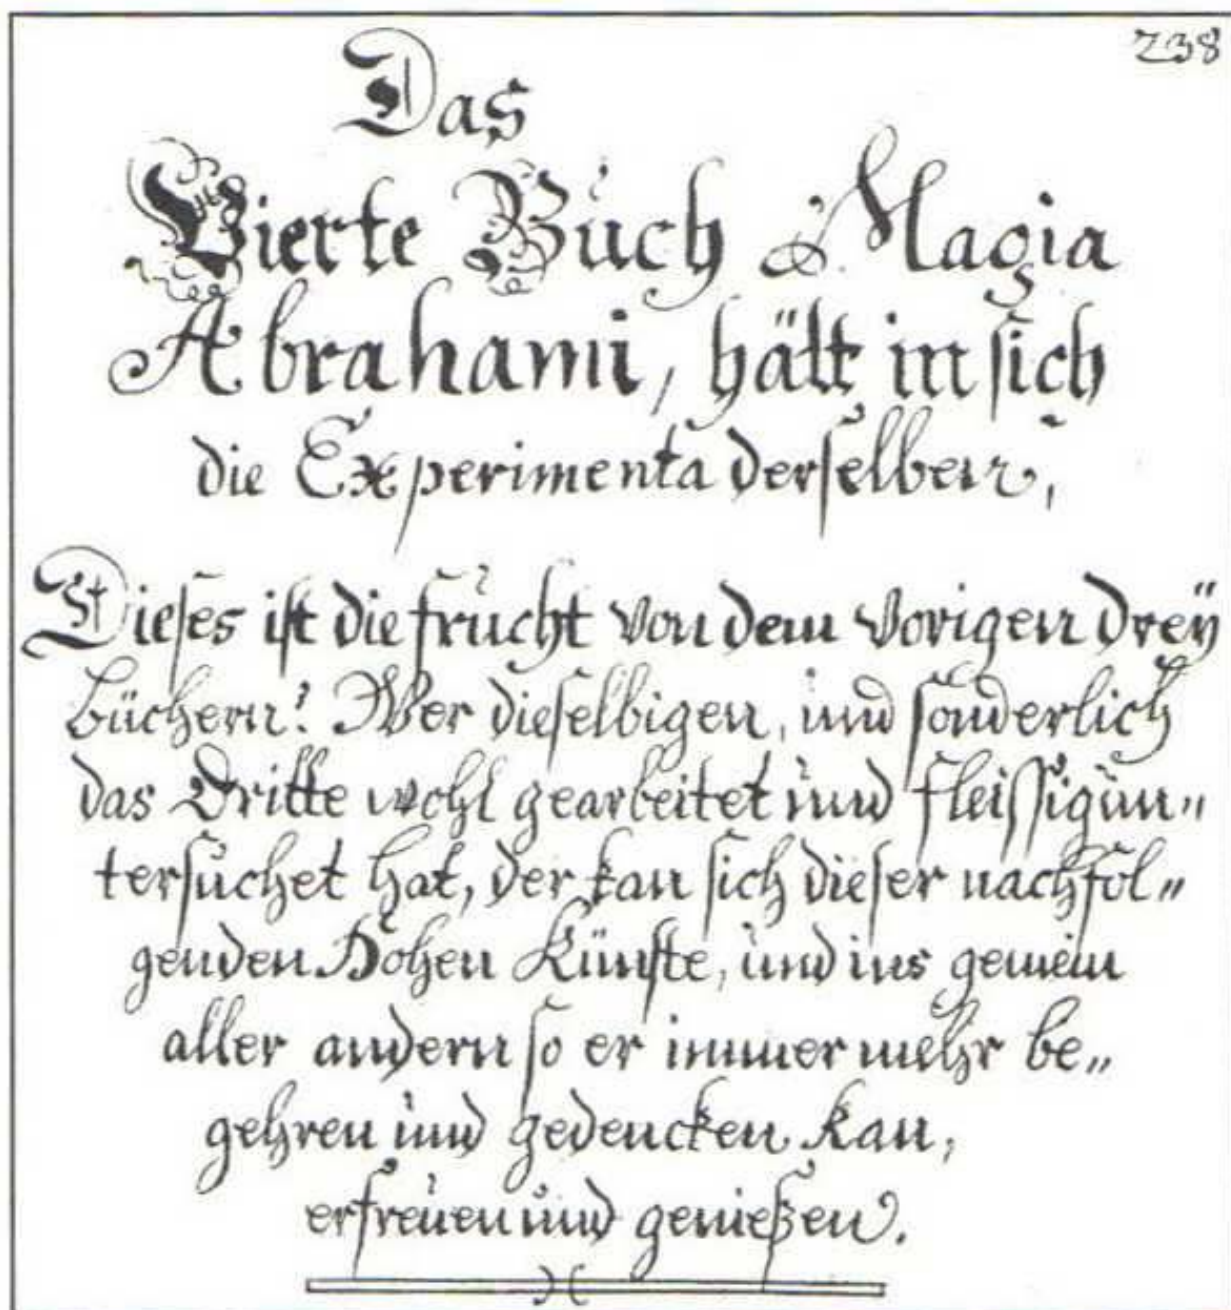 238
Das
Vierte Buch Magia
Abrahami, hält in sich
die Experimenta derselben,
Dieses ist die frucht von denn Vorigen dreÿ
büchern! Wer dieselbigen, und sonderlich
das Dritte wohl gearbeitet und fleissig un„
tersuchet hat, der kan sich dieser nachfol„
genden Hohen Künste, und ins gemein
aller andern so er immer mehr be„
gehren und gedencken kan,
erfreuen und genießen.